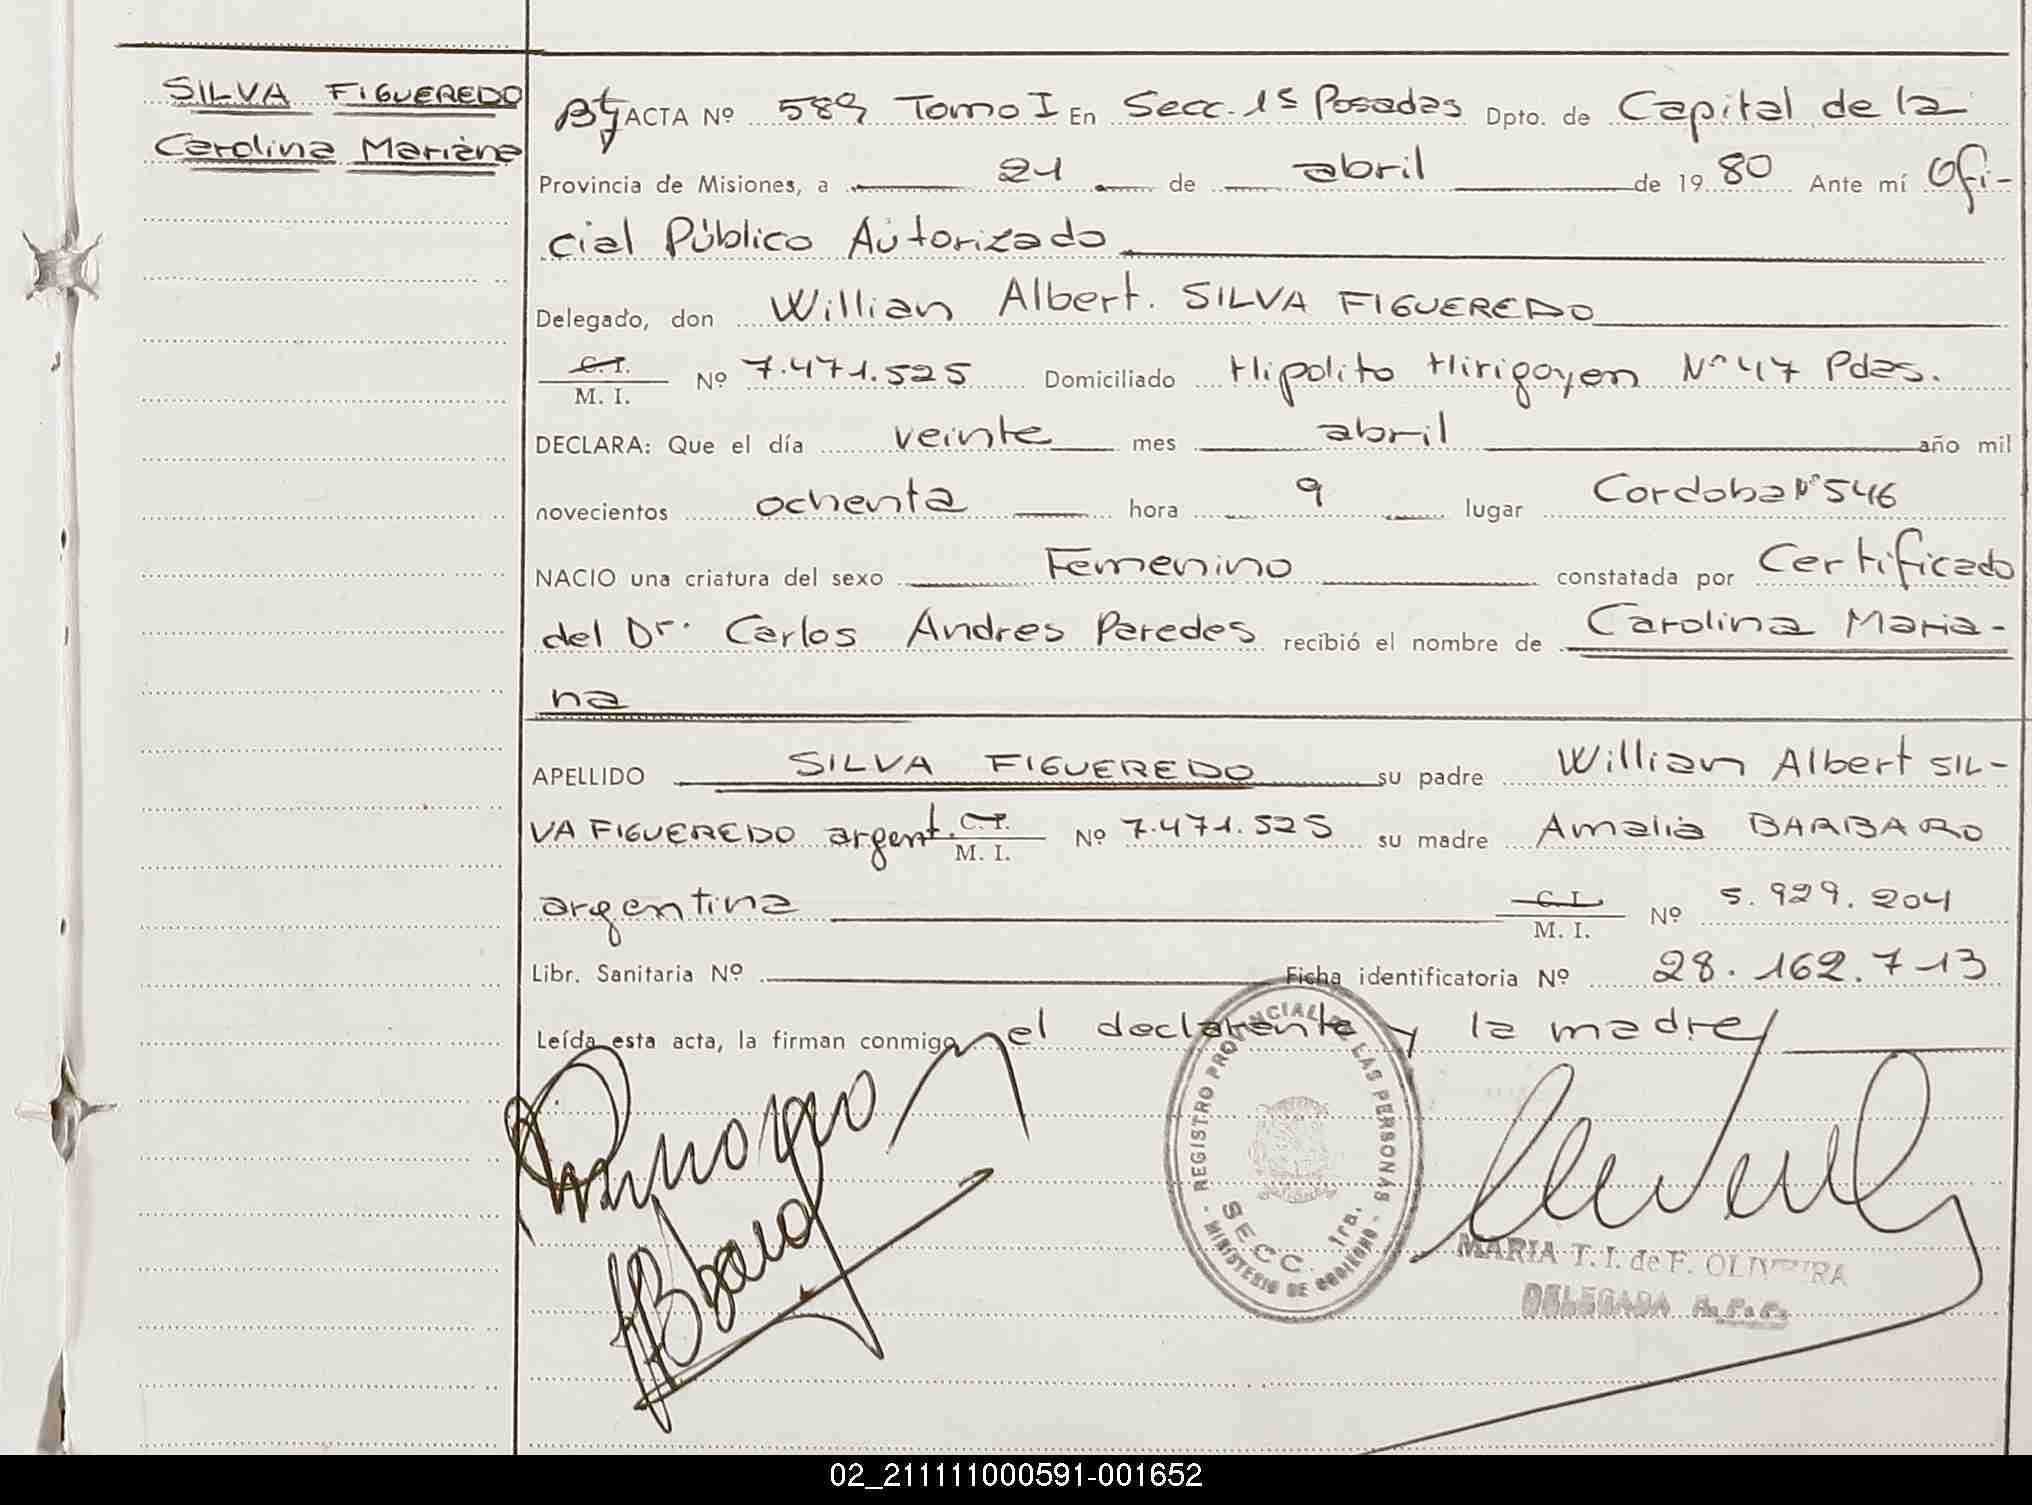 SILVA FIGUEREDO
Carolina Mariana
ACTA Nº 589 Tomo I En Secc. 1ª Posadas Dpto. de Capital de la
Provincia de Misiones, a 21 de abril de 1980 Ante mí Ofi-
cial Público Autorizado
Delegado, don Willian Albert. SILVA FIGUEREDO
C. I.
M. I. Nº 7.471.525 Domiciliado Hipolito Hirigoyen Nº 47 Pdas.
DECLARA: Que el día veinte mes abril año mil
novecientos ochenta hora 9 lugar Cordoba Nº 546
NACIO una criatura del sexo Femenino constatada por Certificado
del Dr. Carlos Andres Paredes recibió el nombre de Carolina Maria-
na
APELLIDO SILVA FIGUEREDO su padre Willian Albert SIL-
VA FIGUEREDO argent. C. I. M. I. Nº 7.471.525 su madre Amalia BARBARO
argentina C. I. M. I. Nº 5.929.204
Libr. Sanitaria Nº Ficha identificatoria Nº 28.162.713
Leída esta acta, la firman conmigo el declarante y la madre
REGISTRO PROVINCIAL DE LAS PERSONAS
SECC. 1ra.
MINISTERIO DE GOBIERNO
MARIA T. I. de F. OLIVEIRA
DELEGADA R. P. P.
02_211111000591-001652